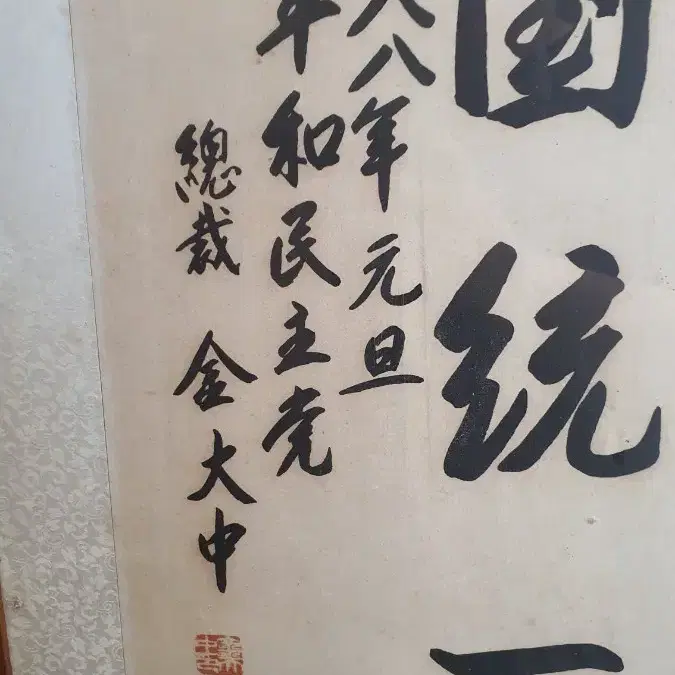 國統一
八八年元旦
平和民主党
總裁 金大中